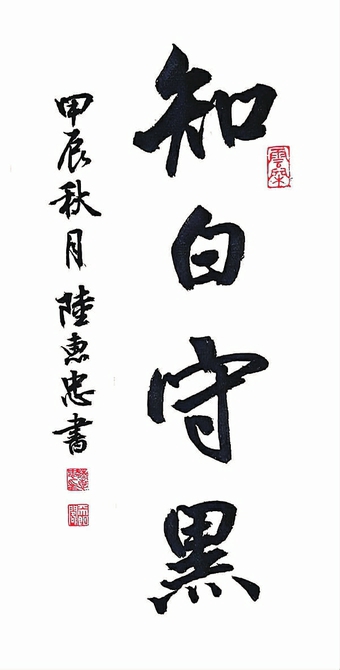 知白守黑
甲辰秋月 陸惠忠書